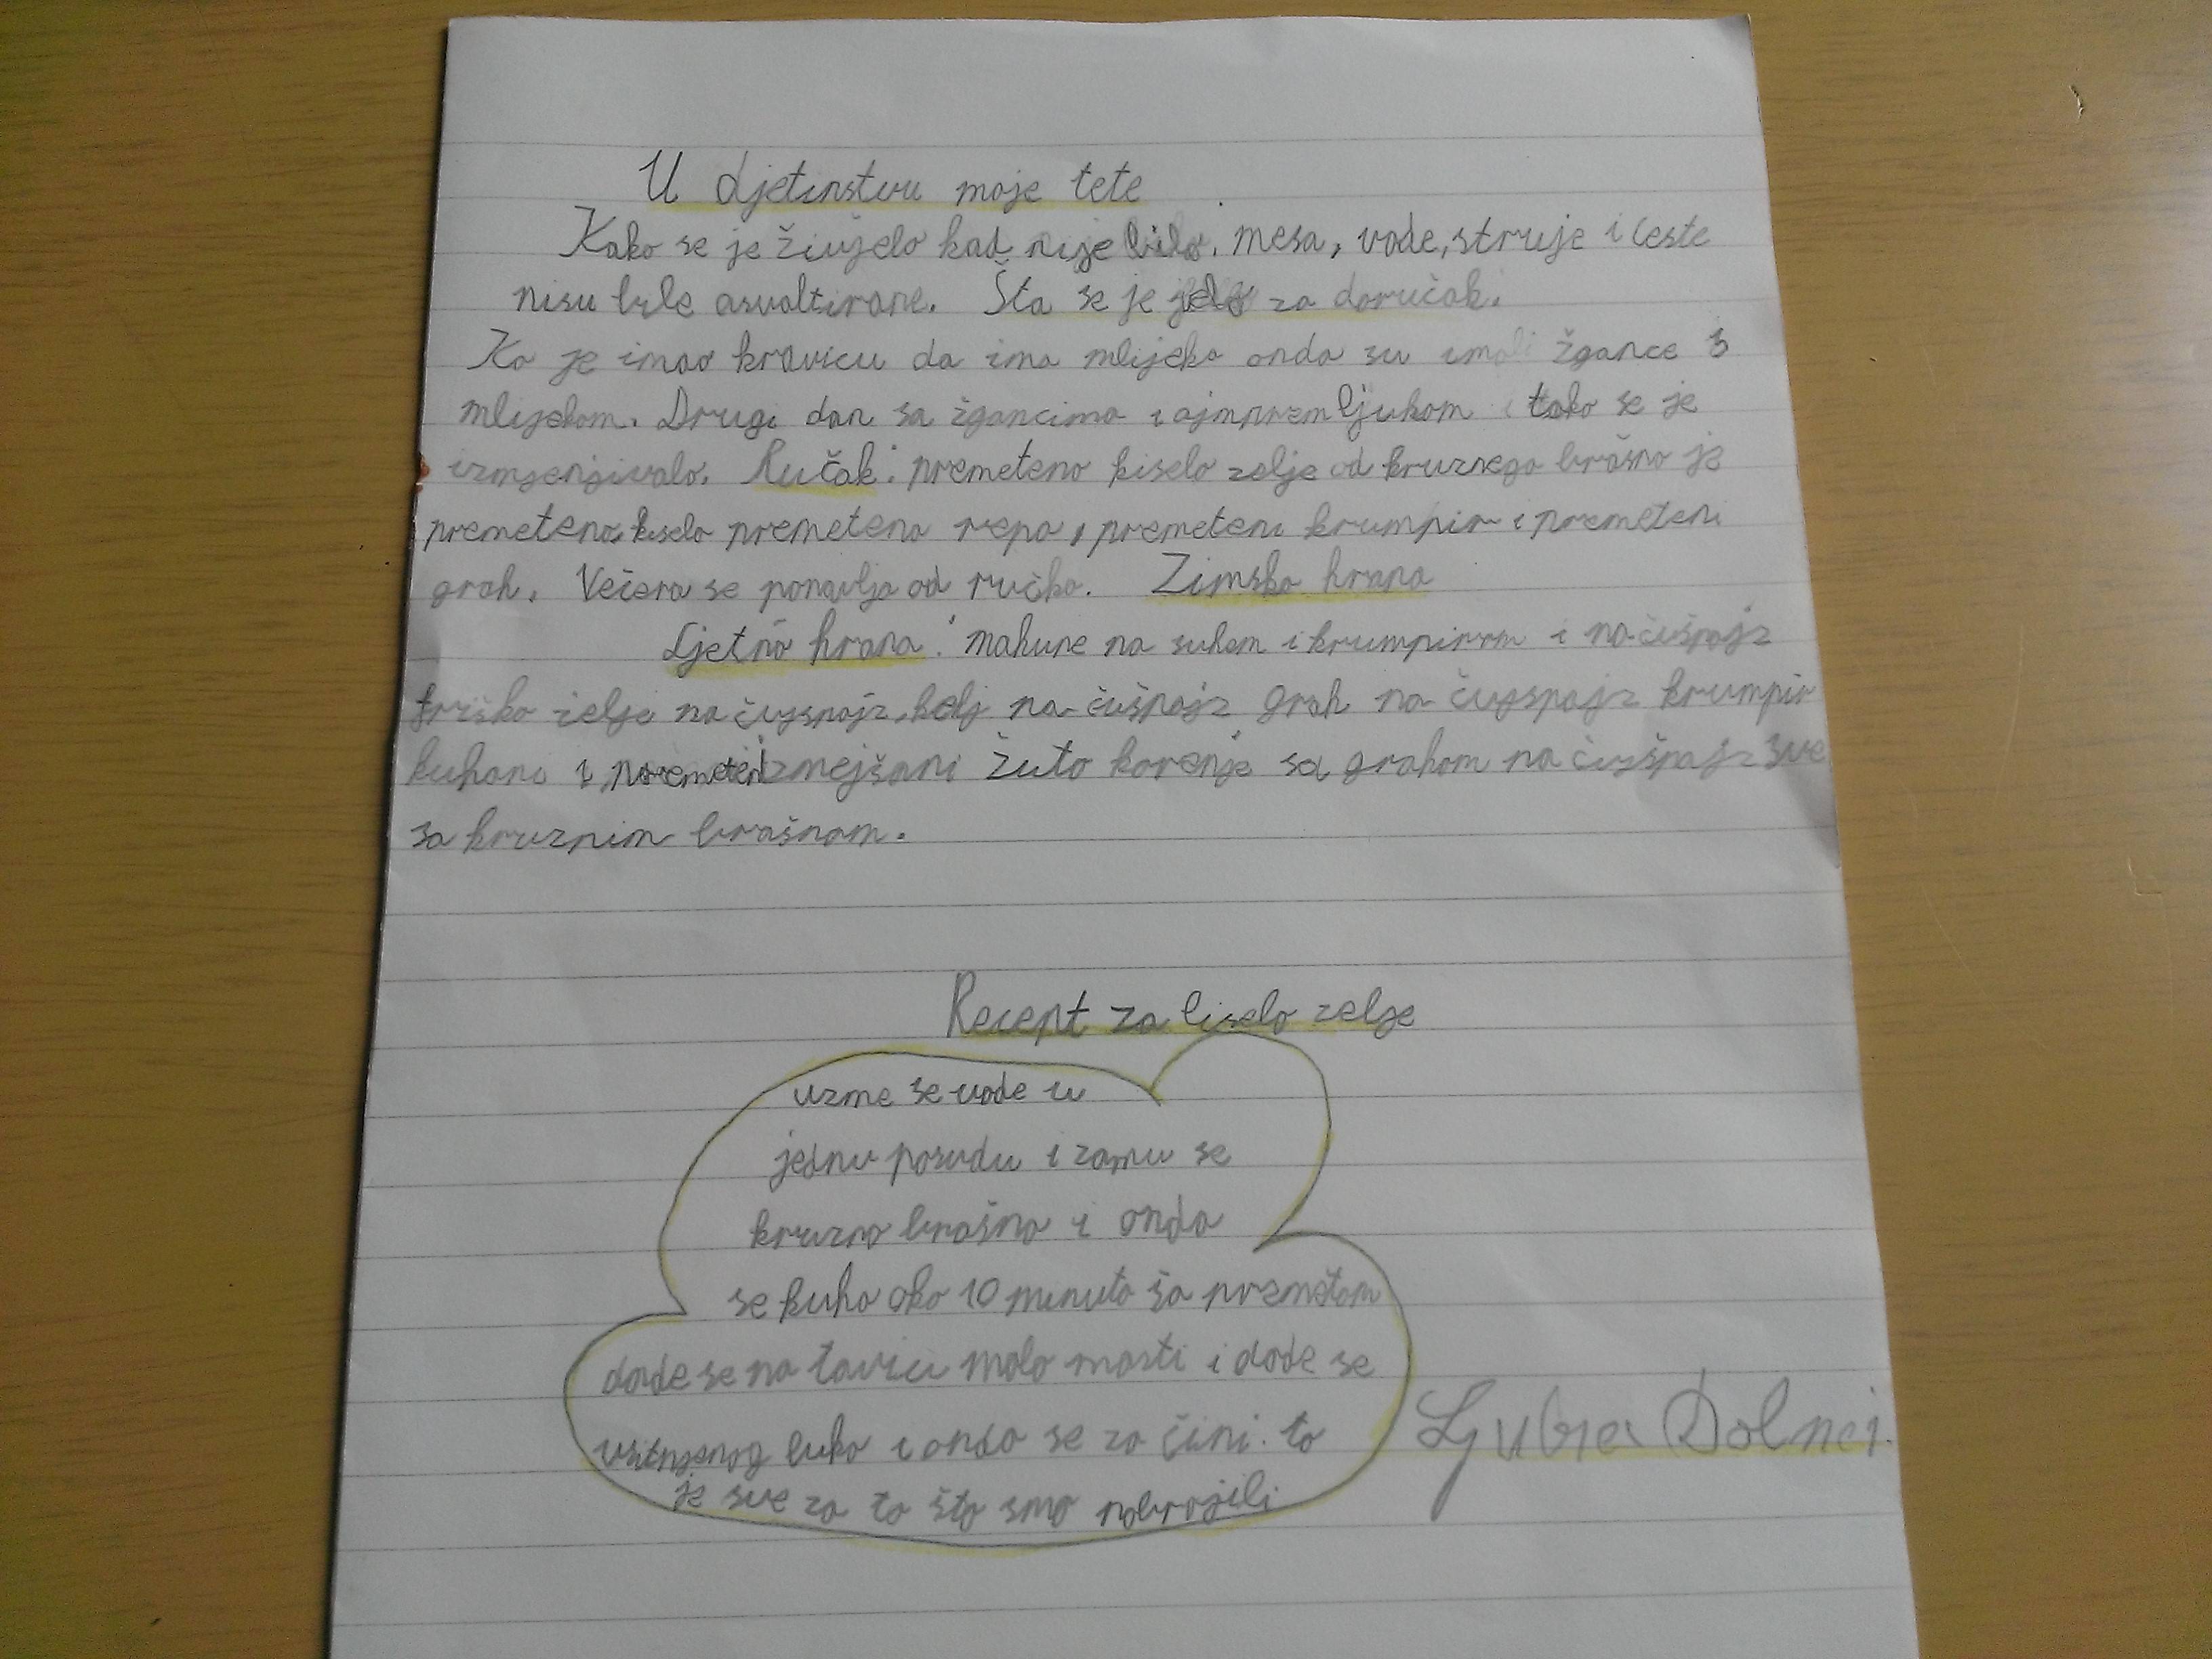 U djetinstvu moje tete
Kako se je živjelo kad nije bilo. mesa, vode, struje i ceste
nisu bile asvaltirane. Šta se je jelo za doručak.
Ko je imao kravicu da ima mlijeka onda su imali žgance s
mlijekom. Drugi dan sa žgancima i ajmpremljuhom i tako se je
izmjenjivalo. Ručak: premeteno kiselo zelje od kruznega brašna je
premeteno kiselo premetena repa, premeteni krumpir i premeteni
grah. Večera se ponavlja od ručka. Zimska hrana
Ljetna hrana: mahune na suhom i krumpirom i na čušpajz
friško zelje na čujspajz, kelj na čušpajz grah na čujspajz krumpir
kuhani i premeteni zmejšani žuto korenje sa grahom na čujšpajz sve
sa kruznim brašnom.
Recept za liselo zelje
uzme se vode u
jednu posudu i zamu se
kruzno brašno i onda
se kuha oko 10 minuta sa premetom
dode se na tavicu malo masti i dode se
luka i onda se za čini. to
je sve za to što smo nabrojili
Ljubica Dolnci.